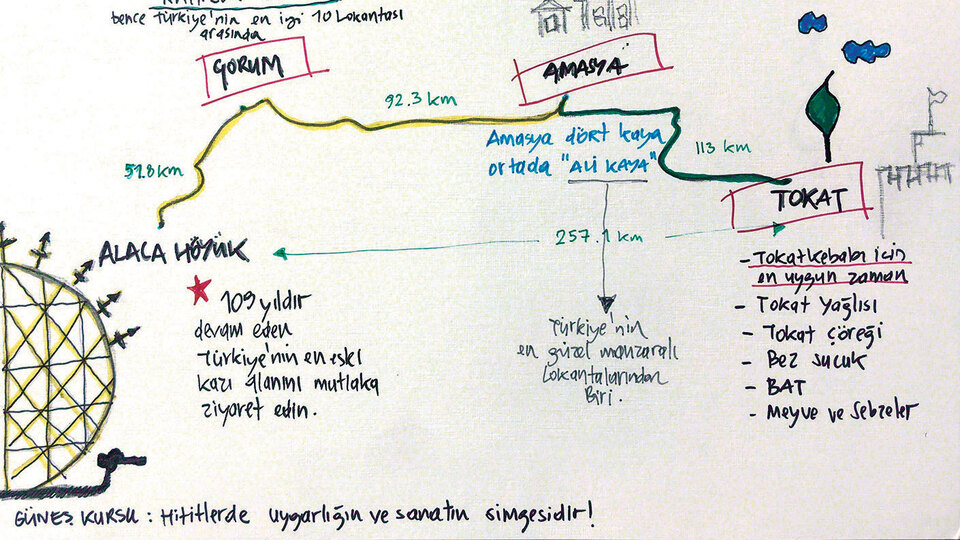 bence Türkiye'nin en iyi 10 Lokantası
arasında
ÇORUM
AMASYA
92.3 km
51.8 km
Amasya dört kaya
ortada "ALİ KAYA"
113 km
TOKAT
ALACA HÖYÜK
257.1 km
109 yıldır
devam eden
Türkiye'nin en eski
kazı alanını mutlaka
ziyaret edin.
Türkiye'nin
en güzel manzaralı
Lokantalarından
Biri.
- Tokat kebabı için
en uygun zaman
- Tokat Yağlısı
- Tokat Çöreği
- Bez sucuk
- BAT
- Meyve ve Sebzeler
GÜNEŞ KURSU : Hititlerde uygarlığın ve sanatın simgesidir!